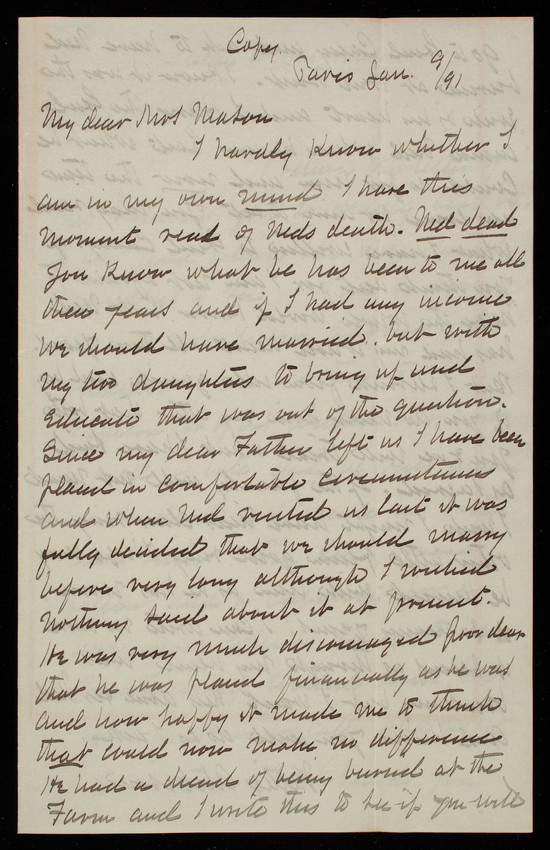 Copy
Paris Jan. 9/91
My dear Mrs Mason
I hardly know whether I
am in my own mind I have this
moment read of Neds death. Ned dead
You know what he has been to me all
these years and if I had any income
we should have married. but with
my two daughters to bring up and
educate that was out of the question.
Since my dear Father left us I have been
placed in comfortable circumstances
and when Ned visited us last it was
fully decided that we should marry
before very long although I wished
nothing said about it at present.
He was very much discouraged poor dear
that he was placed financially as he was
and how happy it made me to think
that could now make no difference
He had a dread of being buried at the
Farm and I write this to see if you will